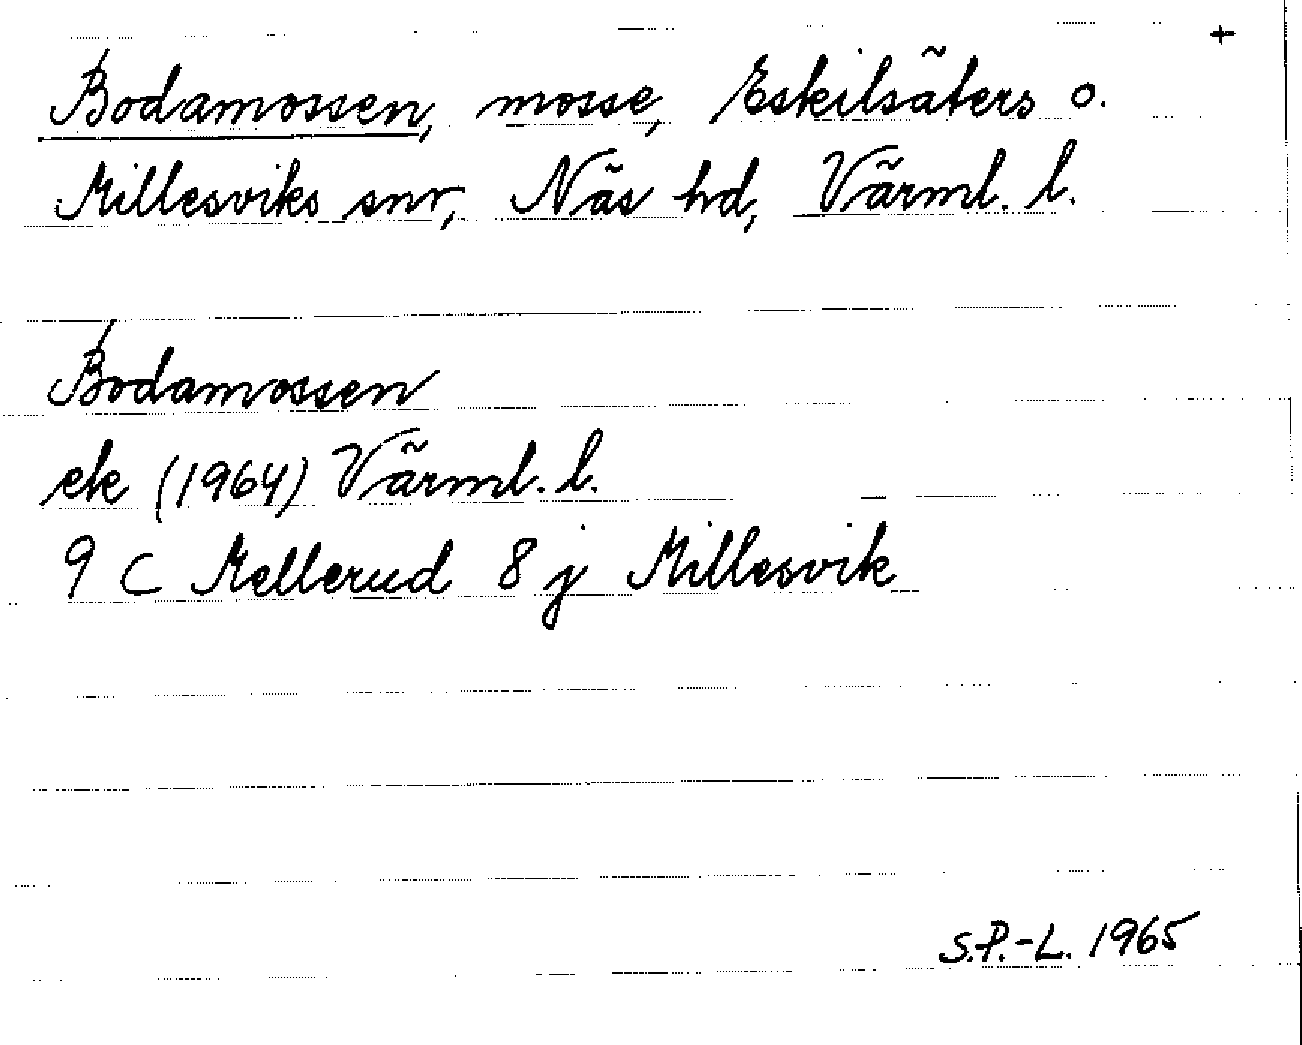 +
Bodamossen, mosse, Eskilsäters o.
Millesviks snr, Näs hd, Värml. l.
Bodamossen
ek (1964) Värml. l.
9 C Mellerud 8 j Millesvik
S.P.-L. 1965